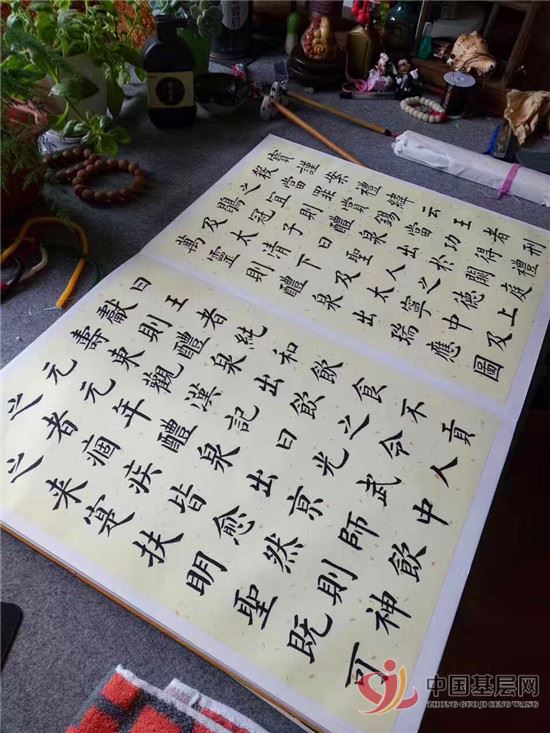 寶謹案禮緯云王者刑
殺當罪賞錫當功得禮
之宜則醴泉出於闕庭
鶡冠子曰聖人之德上
及太清下及太寧中及
萬靈則醴泉出瑞應圖
曰王者純和飲食不貢
獻則醴泉出飲之令人
壽東觀漢記曰光武中
元元年醴泉出京師飲
之者痼疾皆愈然則神
之來寔扶明聖既可
中国基层网
ZHONG GUO JI CENG WANG